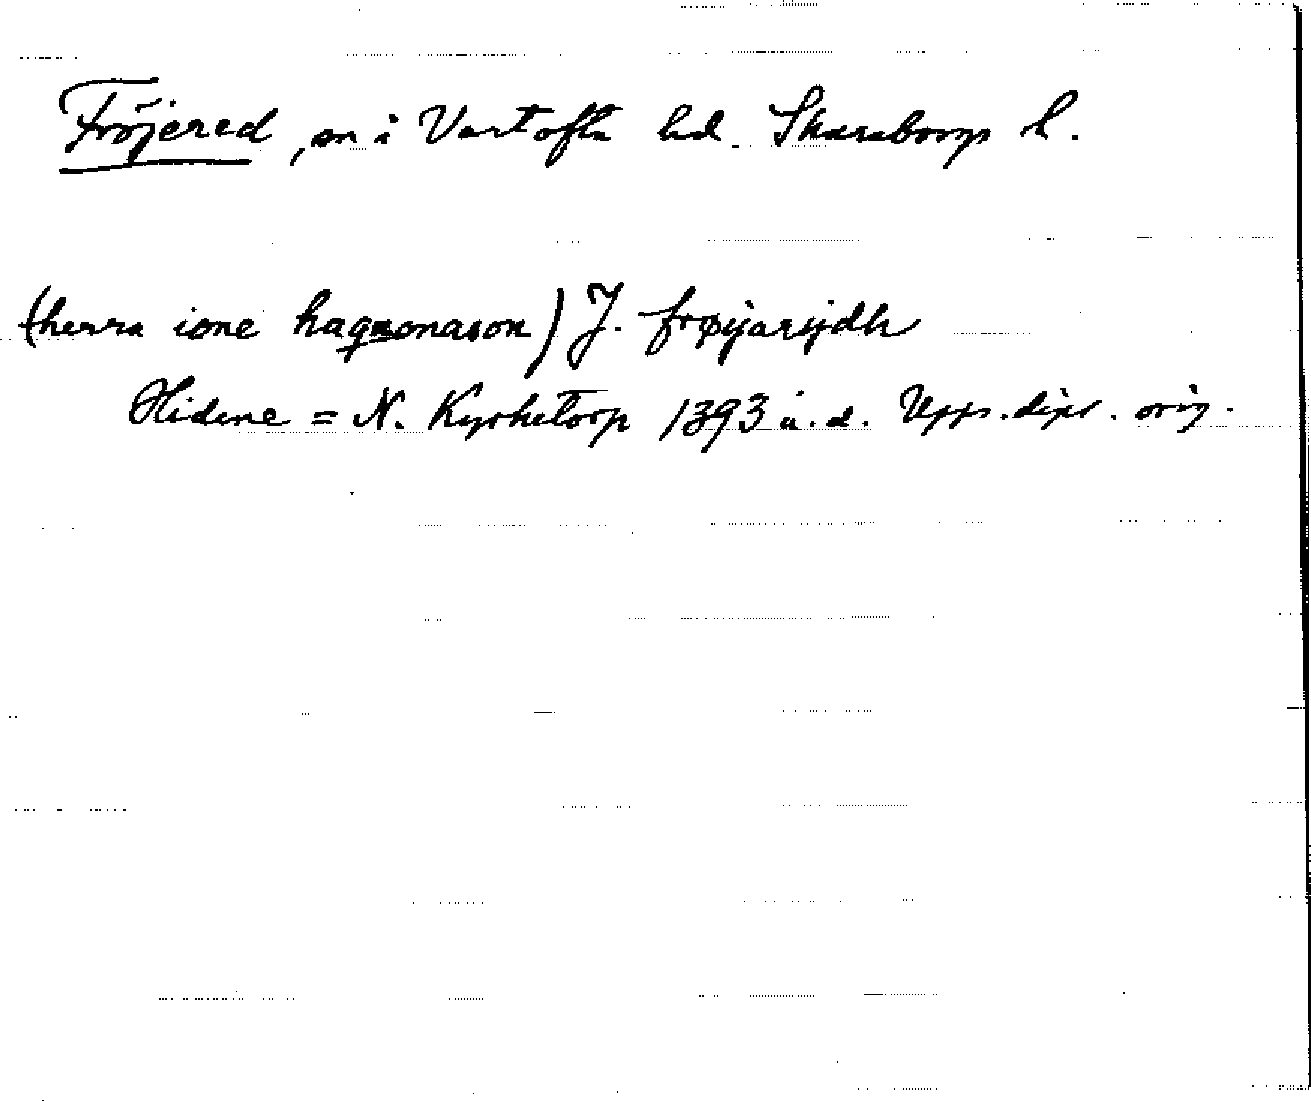 Fröjered, sn i Vartofta hd. Skaraborgs l.
(herra ione haquonason) J. frøyarydh
Hidene = N. Kyrketorp 1393 u.d. Upps. dipl. orig.